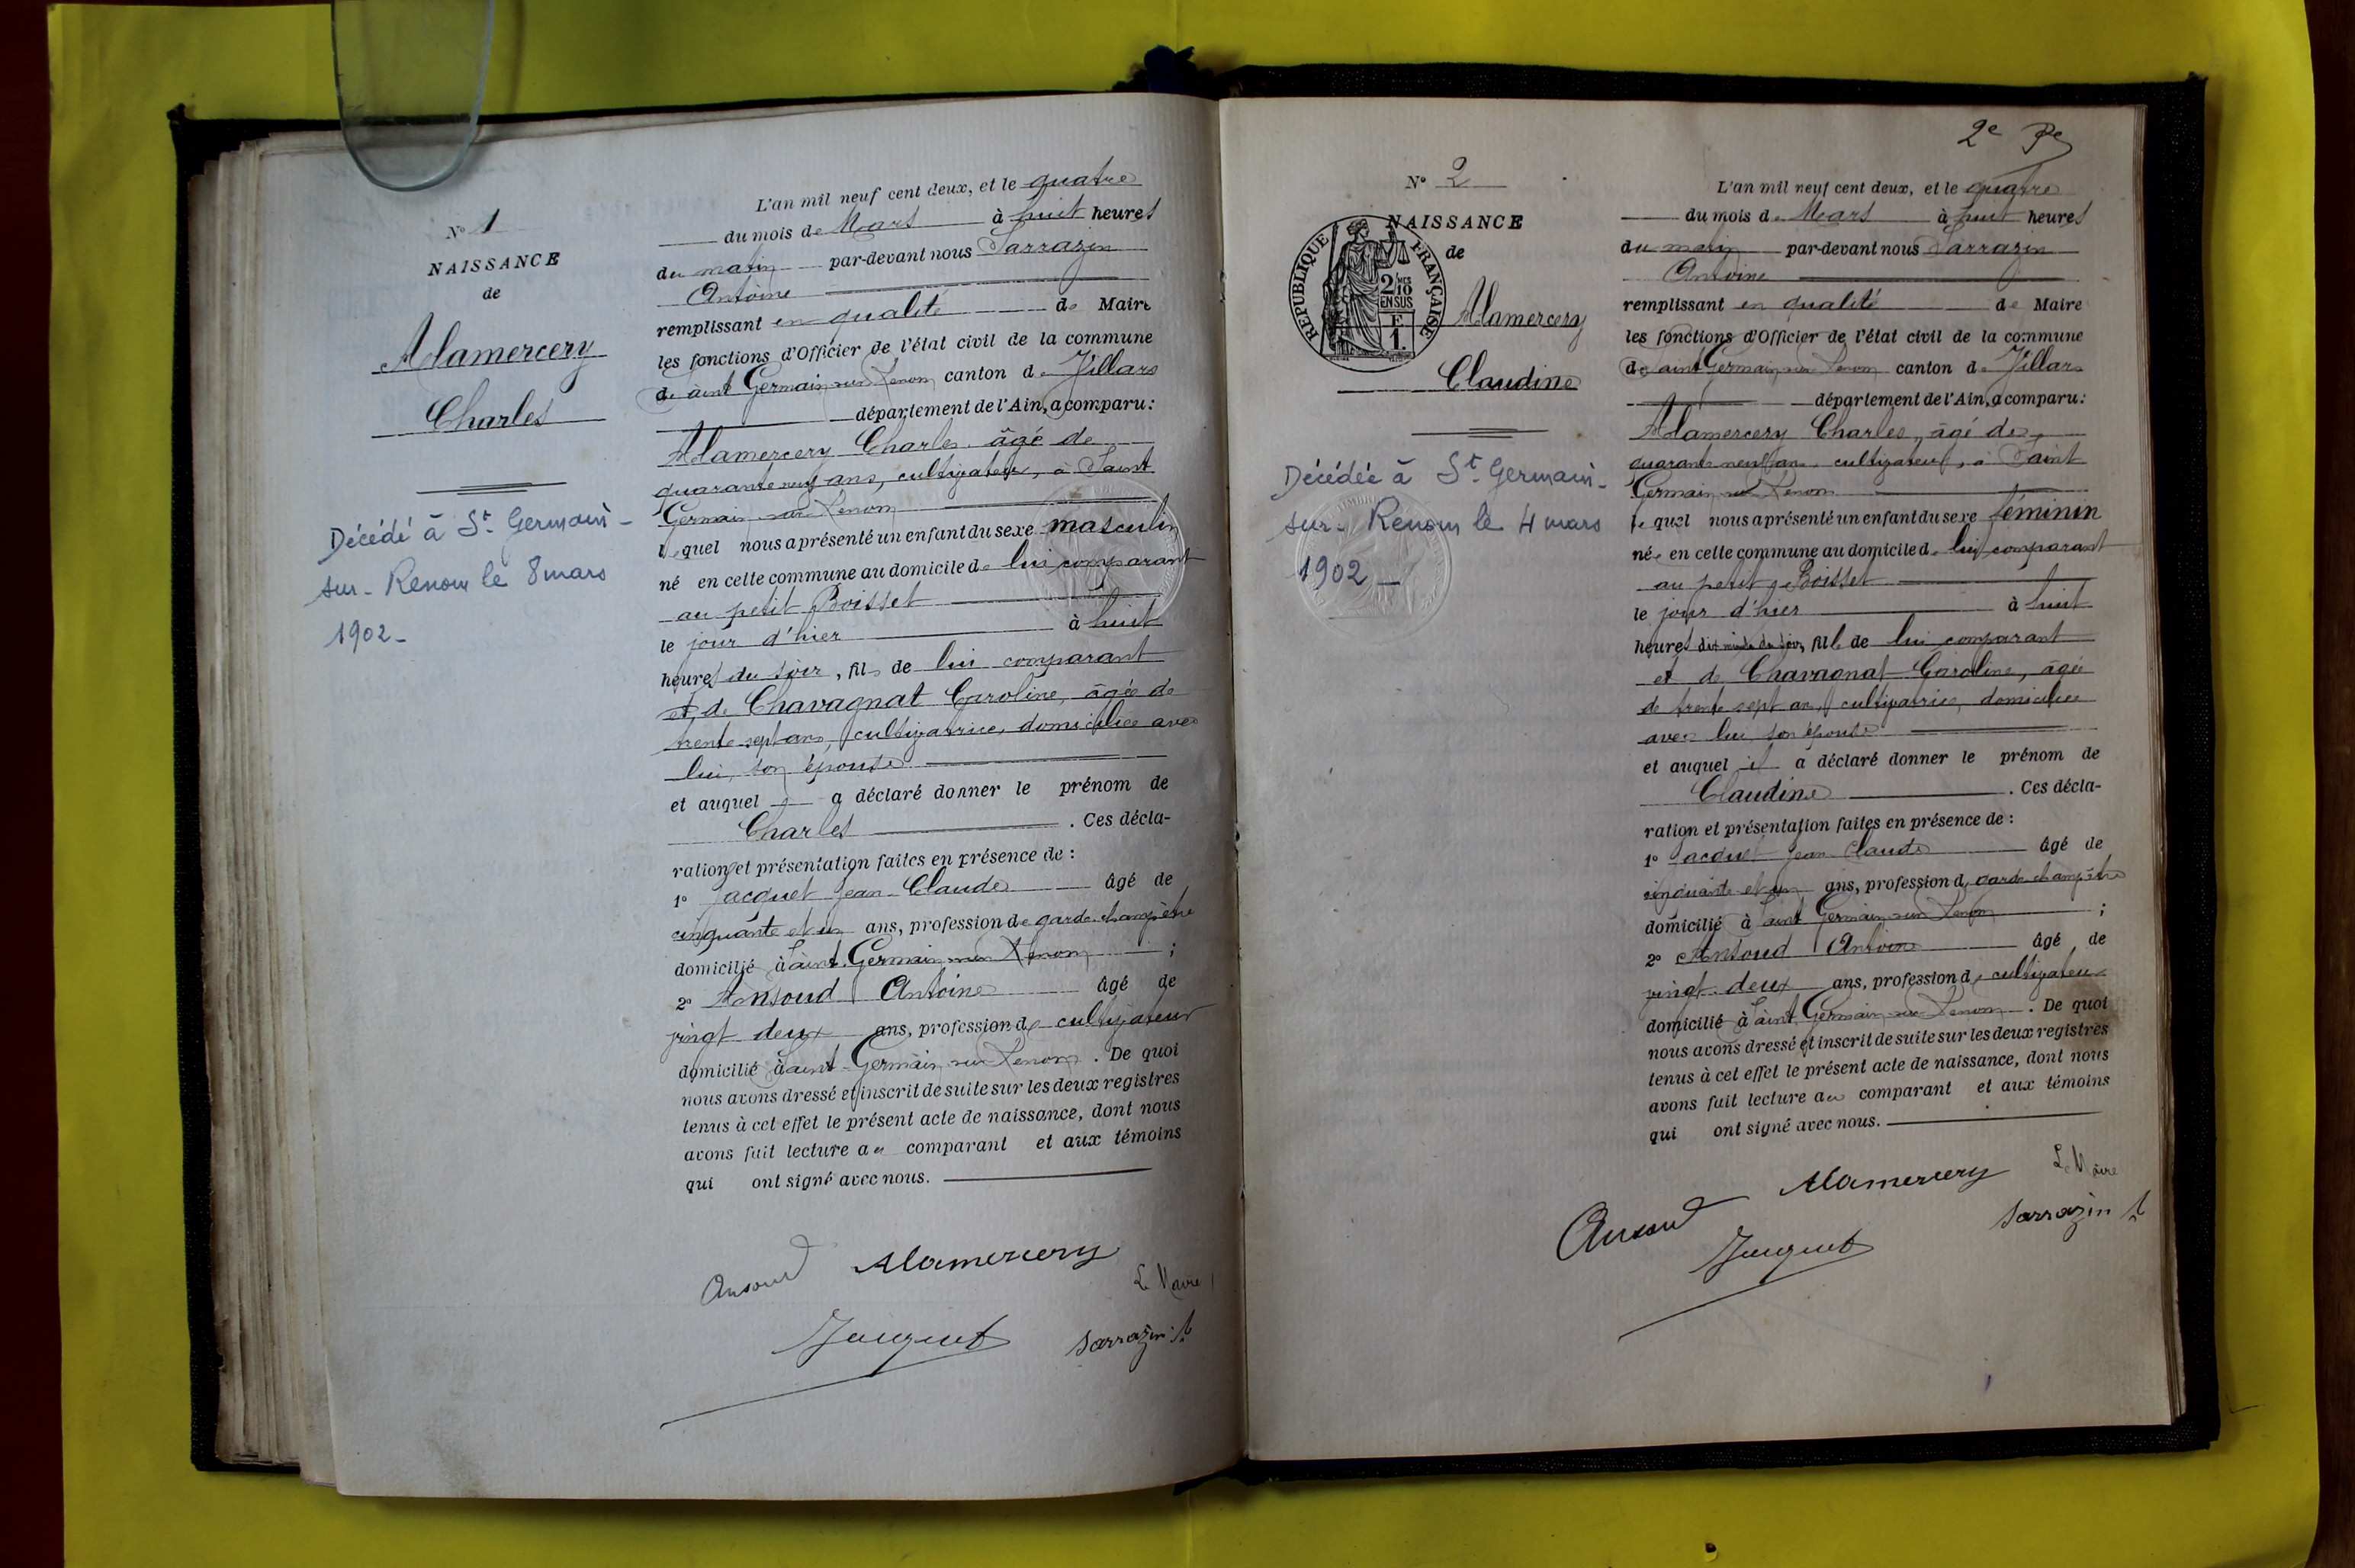 N° 1
NAISSANCE
de
Alamercery
Charles
Décédé à St Germain-
sur-Renom le 8 mars
1902-
L'an mil neuf cent deux, et le quatre
du mois de Mars à huit heures
du matin par-devant nous Sarrazin
Antoine
remplissant en qualité de Maire
les fonctions d'Officier de l'état civil de la commune
de Saint Germain sur Renom canton de Villars
département de l'Ain, a comparu:
Alamercery Charles, âgé de
quarante neuf ans, cultivateur, à Saint
Germain sur Renom
lequel nous a présenté un enfant du sexe masculin
né en cette commune au domicile de lui comparant
au petit Boisset
le jour d'hier à huit
heures du soir, fils de lui comparant
et de Chavagnat Caroline, âgée de
trente sept ans, cultivatrice, domiciliée avec
lui, son épouse
et auquel il a déclaré donner le prénom de
Charles. Ces décla-
ration et présentation faites en présence de:
1° Jacquet Jean Claude âgé de
cinquante et un ans, profession de garde-champêtre
domicilié à Saint Germain sur Renom;
2° Ansoud Antoine âgé de
vingt deux ans, profession de cultivateur
domicilié à Saint-Germain sur Renom. De quoi
nous avons dressé et inscrit de suite sur les deux registres
tenus à cet effet le présent acte de naissance, dont nous
avons fait lecture au comparant et aux témoins
qui ont signé avec nous.
Ansoud Alamercery
Le Maire
Jacquet Sarrazin A
2e
N° 2
NAISSANCE
de
REPUBLIQUE FRANÇAISE
2/10
EN SUS
F
1.
Alamercery
Claudine
Décédée à St Germain-
sur-Renom le 4 mars
1902-
L'an mil neuf cent deux, et le quatre
du mois de Mars à huit heures
du matin par-devant nous Sarrazin
Antoine
remplissant en qualité de Maire
les fonctions d'Officier de l'état civil de la commune
de Saint Germain sur Renom canton de Villars
département de l'Ain, a comparu:
Alamercery Charles, âgé de
quarante neuf ans, cultivateur, à Saint
Germain sur Renom
lequel nous a présenté un enfant du sexe féminin
née en cette commune au domicile de lui comparant
au petit Boisset
le jour d'hier à huit
heures dix minutes du soir, fille de lui comparant
et de Chavagnat Caroline, âgée
de trente sept ans, cultivatrice, domiciliée
avec lui, son épouse
et auquel il a déclaré donner le prénom de
Claudine. Ces décla-
ration et présentation faites en présence de:
1° Jacquet Jean Claude âgé de
cinquante et un ans, profession de garde-champêtre
domicilié à Saint Germain sur Renom;
2° Ansoud Antoine âgé de
vingt deux ans, profession de cultivateur
domicilié à Saint Germain sur Renom. De quoi
nous avons dressé et inscrit de suite sur les deux registres
tenus à cet effet le présent acte de naissance, dont nous
avons fait lecture au comparant et aux témoins
qui ont signé avec nous.
Ansoud Alamercery Le Maire
Jacquet Sarrazin A